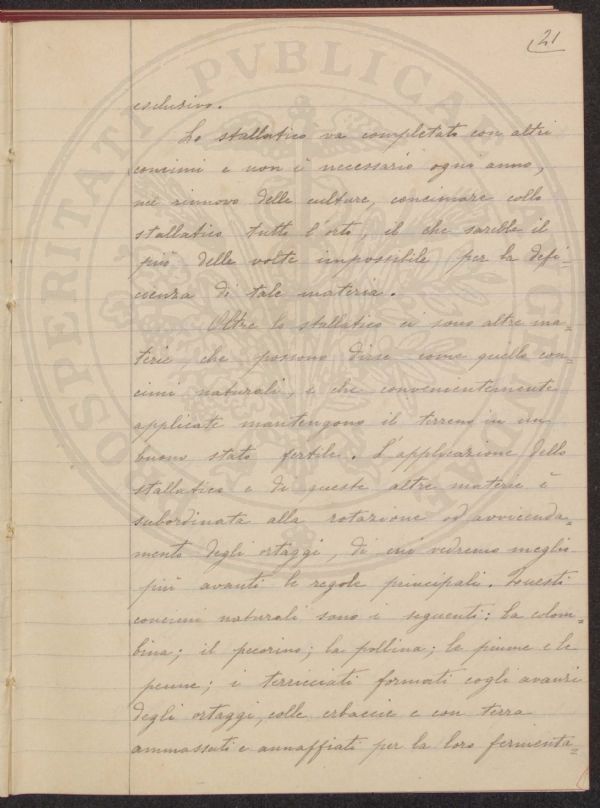 21
esclusivo.
Lo stallatico va completato con altri
concimi e non è necessario ogni anno,
nel rinnovo delle culture, concimare collo
stallatico tutto l'orto, il che sarebbe il
più delle volte impossibile per la defi-
cienza di tale materia.
Oltre lo stallatico ci sono altre ma-
terie, che possono dirsi come quello con-
cimi naturali, e che convenientemente
applicate mantengono il terreno in un
buono stato fertile. L'applicazione dello
stallatico e di queste altre materie è
subordinata alla rotazione od avvicenda-
mento degli ortaggi, di cui vedremo meglio
più avanti le regole principali. Questi
concimi naturali sono i seguenti: la colom-
bina; il pecorino; la pollina; le piume e le
penne; i terricciati formati cogli avanzi
degli ortaggi, colle erbaccie e con terra
ammassati e annaffiati per la loro fermenta-
PROSPERITATI PVBLICAE AVGENDAE